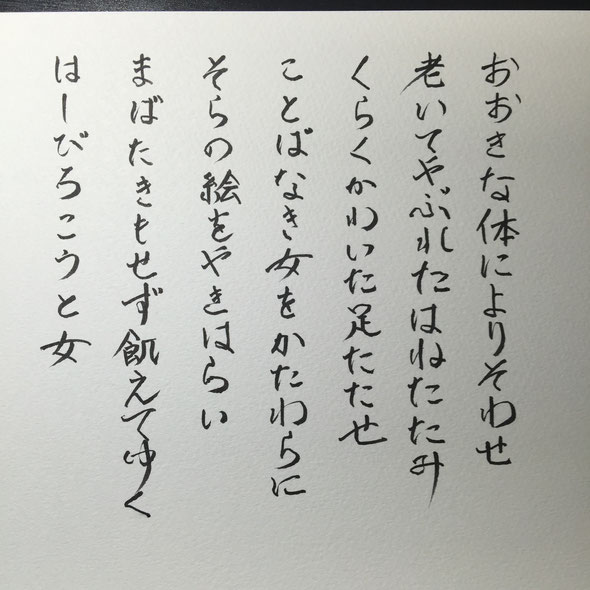 おおきな体によりそわせ
老いてやぶれたはねたたみ
くらくかわいた足たたせ
ことばなき女をかたわらに
そらの絵をやきはらい
まばたきもせず飢えてゆく
はーびろこうと女